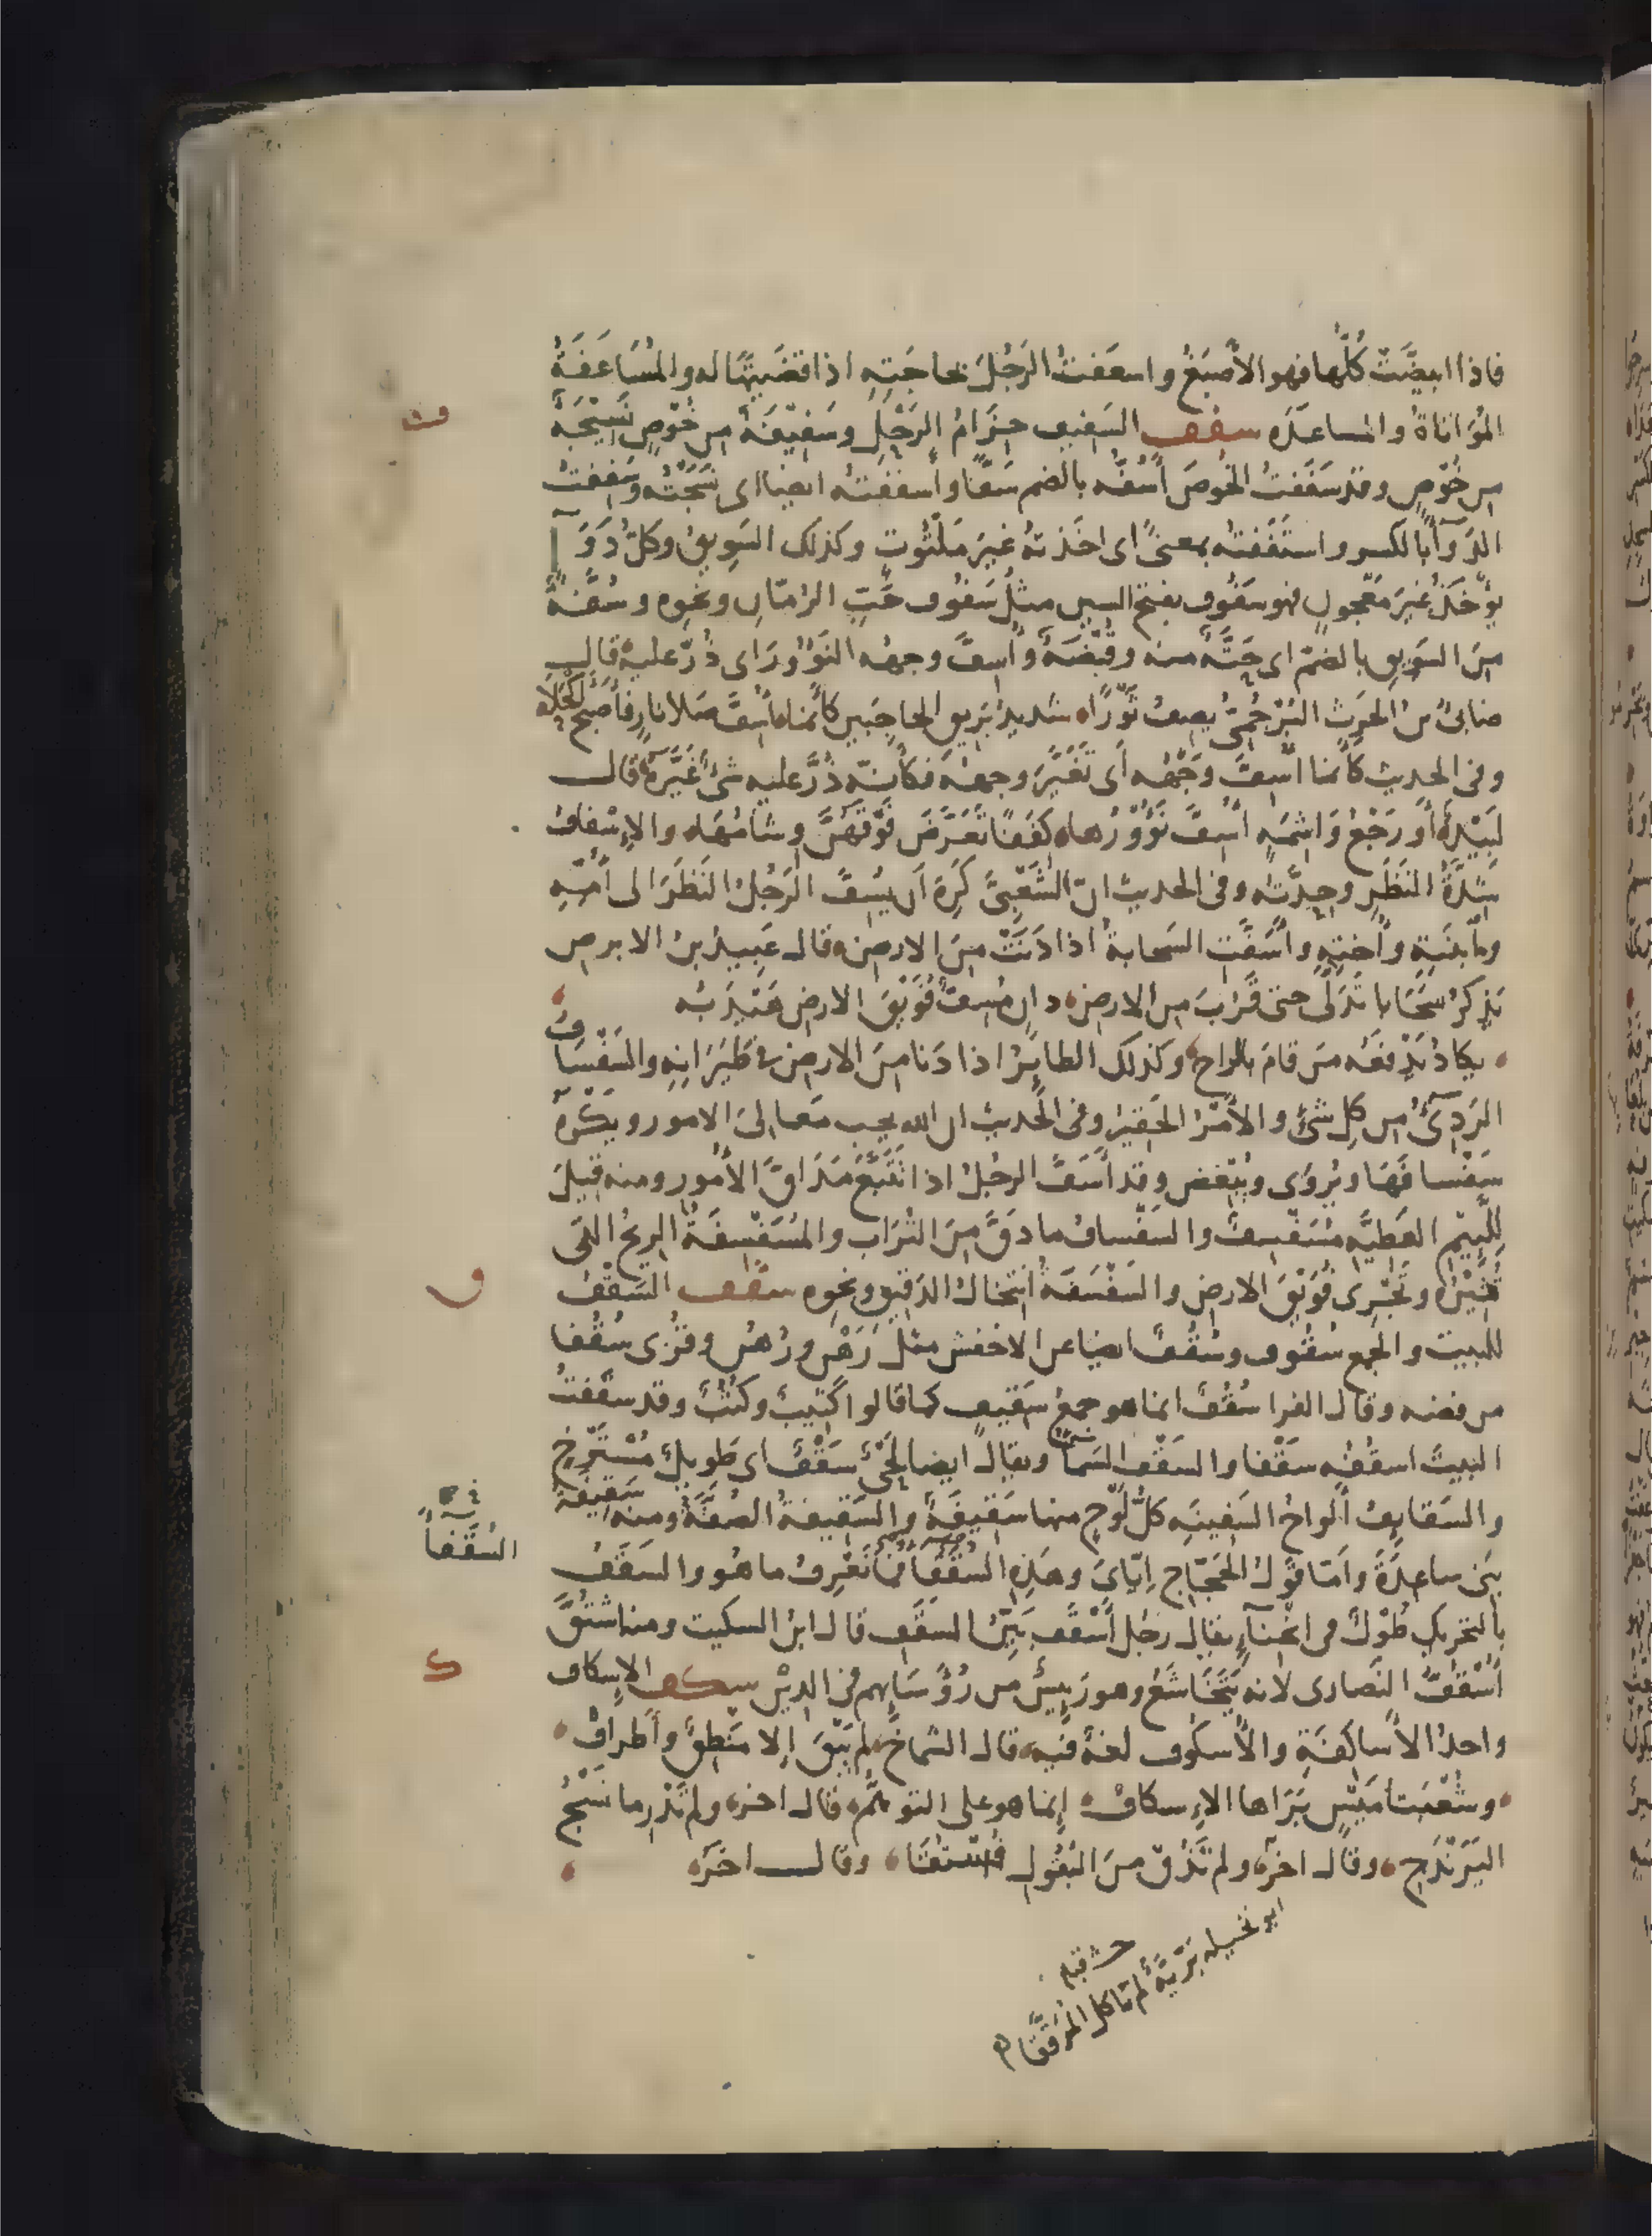 فاذا ابيضّت كُلّها فهو الأصبَغُ واسعَفتُ الرَجُلَ بحاجَتِهِ اذا قضَيتَهَا له والمُسَاعَفَةُ
المُؤاتاةُ والمساعَدَه سفف السَفيف حزَامُ الرَحْلِ وسَفِيفَةٌ من خُوْصٍ نَسِيْجَةٌ
من خُوْصٍ وقد سَفَفتُ الخُوصَ أَسُفُّه بالضم سَفًّا وأسففتُه ايضا اى نسَجْتُه وسَفِفتُ
الدَوآءَ بالكسر واستَفَفتُه بمعنىً اى اخَذتهُ غيرَ مَلْتُوتٍ وكذلك السَوِيقُ وكلُّ دَوَآءٍ
يؤْخَذُ غيرَ مَعْجُونٍ فهو سَفُوف بفتح السين مثلُ سَفُوف حَبِّ الرُمّانِ ونحوِه وسُفَّةٌ
مِنَ السَوِيقِ بالضمّ اى حَبَّةٌ منه وقُبْضَةٌ وأُسِفَّ وجهُه النَؤُورَ اى ذُرَّ عليه قال
ضابئُ بنُ الحرث البُرْجُمِىُّ يصِفُ ثَوْرًا شديدُ بَرِيقِ الحاجِبَينِ كأنّما أُسِفَّ صَلا نارٍ فأَصْبَح أكحَلا
وفى الحديث كأنما أُسِفَّ وَجْهُه أى تَغَيَّرَ وجههُ فكأنّه ذُرَّ عليه شىءٌ غَيَّرَهُ قال
لَبِيْدٌ أو رَجْعُ وَاشِمَةٍ أُسِفَّ نَؤُوْرُها كِفَفًا تَعَرَّضَ فَوْقَهُنَّ وِشَامُهَا والإِسْفافُ
شِدَّةُ النَظَرِ وحِدّتُه وفى الحديث انّ الشَعْبِىَّ كَرِهَ أَن يُسِفَّ الرَجُلُ النَظَرَ الى أُمِّهِ
وابنَتِهِ وأُختِهِ وأَسَفَّتِ السَحابةُ اذا دَنَتْ مِنَ الارضِ قال عَبِيدُ بنُ الابرص
يَذكرُ سَحَابا تَدَلَّى حتى قَرُبَ من الارض دانٍ مُسِفٍّ فُوَيْقَ الارضِ هَيْدَبُه
يكادُ يَدْفعُه مَن قامَ بالراحِ وكذلك الطايِرُ اذا دَنا مِنَ الارضِ فى طَيَرَانِهِ والسَفْسَافُ
الرَدِىءُ من كلِ شىءٍ والأَمْرُ الحَقِيرُ وفى الحديث ان الله يحب مَعالِىَ الامور ويكْرَهُ
سَفْسافَهَا ويُروَى ويُبْغض وقد أَسَفَّ الرجُلُ اذا تَتَبَّعَ مَدَاقَّ الأُمُور ومنه قيلَ
لِلَّئِيْمِ العَطِيَّه مُسَفْسِفٌ والسَفْسافُ ما دَقَّ مِنَ التُرَاب والمُسَفْسِفَةُ الرِيحُ التى
تُثِيْرُه وتَجْرِى فُوَيْقَ الارض والسَفْسَفَةُ انتخالُ الدَقيقِ ونحوِه سقف السَقْفُ
للبيت والجمع سُقُوف وسُقُفٌ ايضا عن الاخفش مثل رَهْنٍ ورُهُنٍ وقُرِى سُقُفا
من فضه وقال الفرا سُقُفٌ انما هو جمعُ سَقِيف كما قالوا كَثِيبٌ وكُثُبٌ وقد سقَفتُ
البيتَ اسقُفُه سقْفا والسَقْف السَمآء ويقال ايضا لَحْىٌ سَقْفٌ اى طَوِيلٌ مُسْتَرْخٍ
والسَقايِفُ ألواحُ السَفينَه كلُّ لَوْحٍ منها سَقِيفَةٌ والسَقِيفةُ الصُفَّةُ ومنه سَقِيفَةُ
بَنى ساعِدَةَ وأمّا قَوْلُ الحَجّاج إيّاىَ وهَذِهِ السُقَفَآءُ فما نَعْرِفُ ما هُو والسَقَفُ
بالتحريك طُوْلٌ فى انْحِنآءٍ يقال رجُل أَسْقَف بَيِّنُ السَقَفِ قال ابنُ السكيت ومنه اشتُقَّ
أُسْقُفُّ النَصارى لانه يَتَخَاشَعُ وهو رَئِيسٌ من رُؤَسَايِهم فى الدِيْن سكف الإسكاف
واحدُ الأَساكَفَةِ والأُسكُوف لغةٌ فيه قال الشماخُ لم يَبْقَ إِلا مِنْطَقٌ وأَطرافْ
وشُعْبَتا مَيْسٍ بَرَاها الإِسكافْ إنما هو على التوهُّم قال اخر ولم تَدْرِ ما نَسْجُ
اليَرَنْدَجِ وقال اخر ولم تَذُقْ مِنَ البُقُولِ فُسْتُقَا وقال اخرَ
ڡ
ق
السُقَّفَاءُ
ك
ابو نخيله بَرِّيَّةٌ لم تاكل المُرَقَّقَا